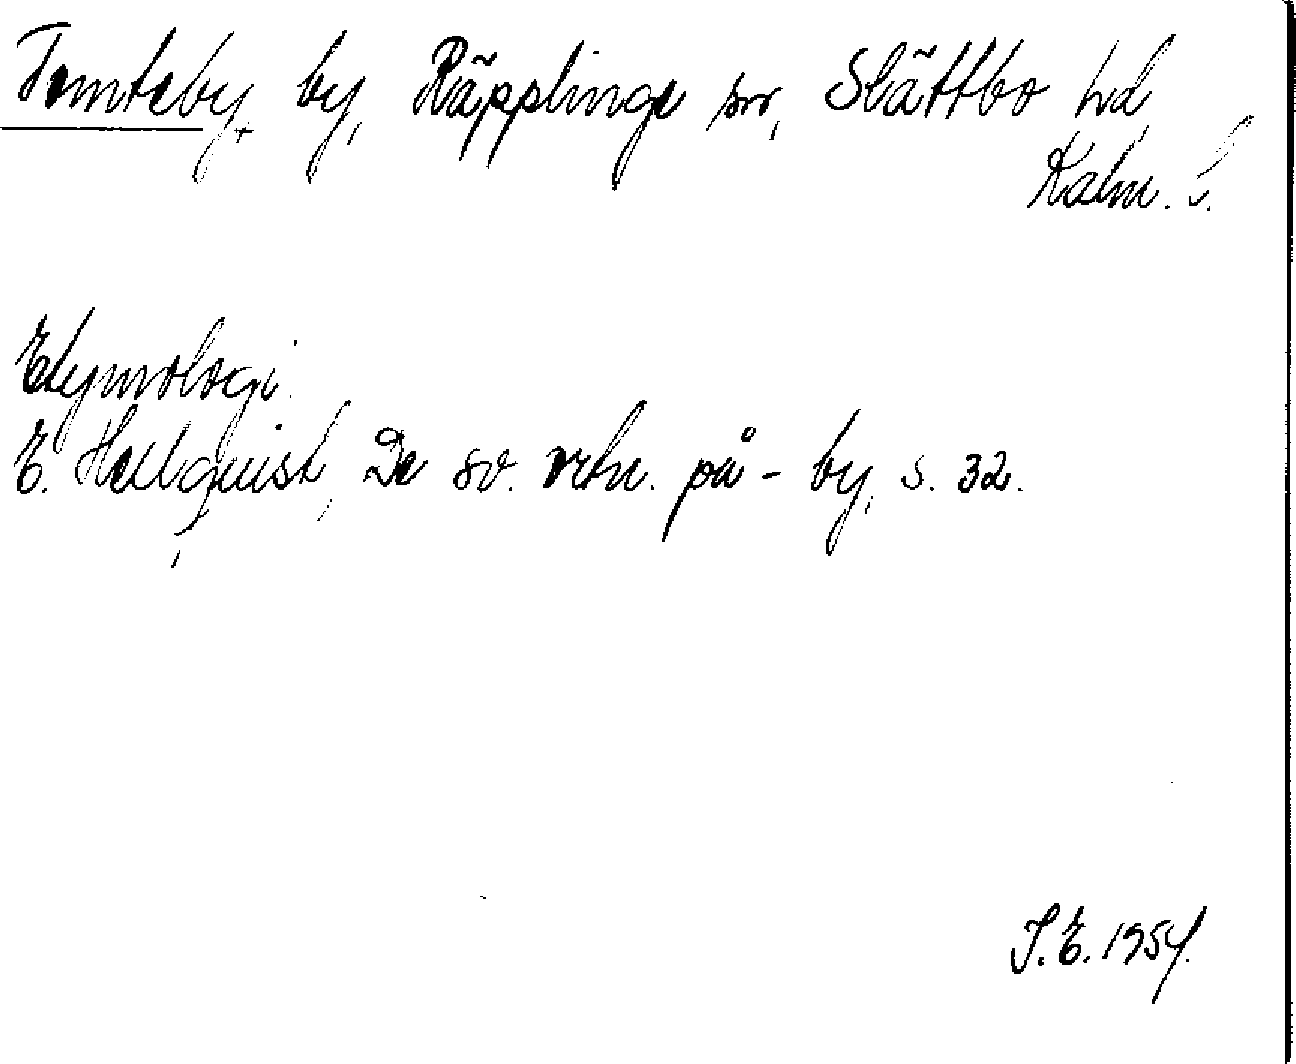 Tomteby, by, Räpplinge sn, Slättbo hd
Kalm. l.
Etymologi.
E. Hellquist, De sv. ortn. på - by, s. 32.
S. E. 1954.